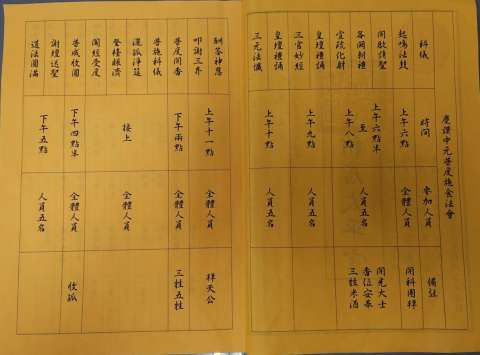 慶讚中元普度施食法會
科儀 時間 參加人員 備註
起鳴法鼓 上午六點 全體人員 開科團拜
開啟請聖
各開朝禮 上午六點半至上午八點 人員五名 開光大士
香位安奉
三牲米酒
宣疏化財
皇壇禮誦
三官妙經 上午九點 人員五名
皇壇禮誦
三元法懺 上午十點 人員五名
酬答神恩 上午十一點 全體人員 拜天公
叩謝三界
普度開香 下午兩點 全體人員 三牲五牲
普施科儀
還孤淨筵 接上 全體人員
登棲賑濟
開經受度
普成收圓 下午四點半 全體人員 收孤
謝壇送聖
道法圓滿 下午五點 人員五名